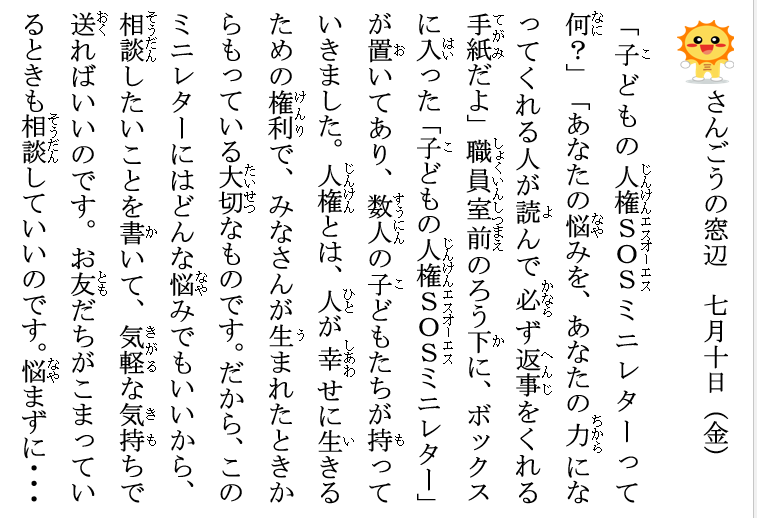 さんごうの窓辺　七月十日（金）
「子どもの人権ＳＯＳミニレターって
何？」「あなたの悩みを、あなたの力にな
ってくれる人が読んで必ず返事をくれる
手紙だよ」職員室前のろう下に、ボックス
に入った「子どもの人権ＳＯＳミニレター」
が置いてあり、数人の子どもたちが持って
いきました。人権とは、人が幸せに生きる
ための権利で、みなさんが生まれたときか
らもっている大切なものです。だから、この
ミニレターにはどんな悩みでもいいから、
相談したいことを書いて、気軽な気持ちで
送ればいいのです。お友だちがこまってい
るときも相談していいのです。悩まずに・・・